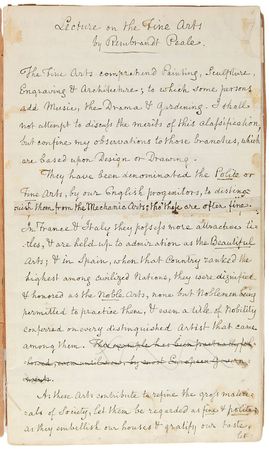 Lecture on the Fine Arts
by Rembrandt Peale.
The Fine Arts comprehend Painting, Sculpture,
Engraving & Architecture; to which some persons
add Music, the Drama & Gardening. I shall
not attempt to discuss the merits of this Classification,
but confine my observations to those branches, which
are based upon Design or Drawing.
They have been denominated the Polite or
Fine Arts, by our English progenitors, to disting
uish them from the Mechanic Arts; tho' these are often fine.
In France & Italy they possess more attractive ti-
tles, & are held up to admiration as the Beautiful
Arts; & in Spain, when that Country ranked the
highest among civilized Nations, they were dignified
& honored as the Noble Arts, none but Noblemen being
permitted to practice them, & even a title of Nobility
conferred on every distinguished Artist that came
among them. This example has been
by most European Govern
ments.
As these Arts contribute to refine the gross mate-
rials of Society, let them be regarded as fine & polite:
as they embellish our houses & gratify our taste,
let